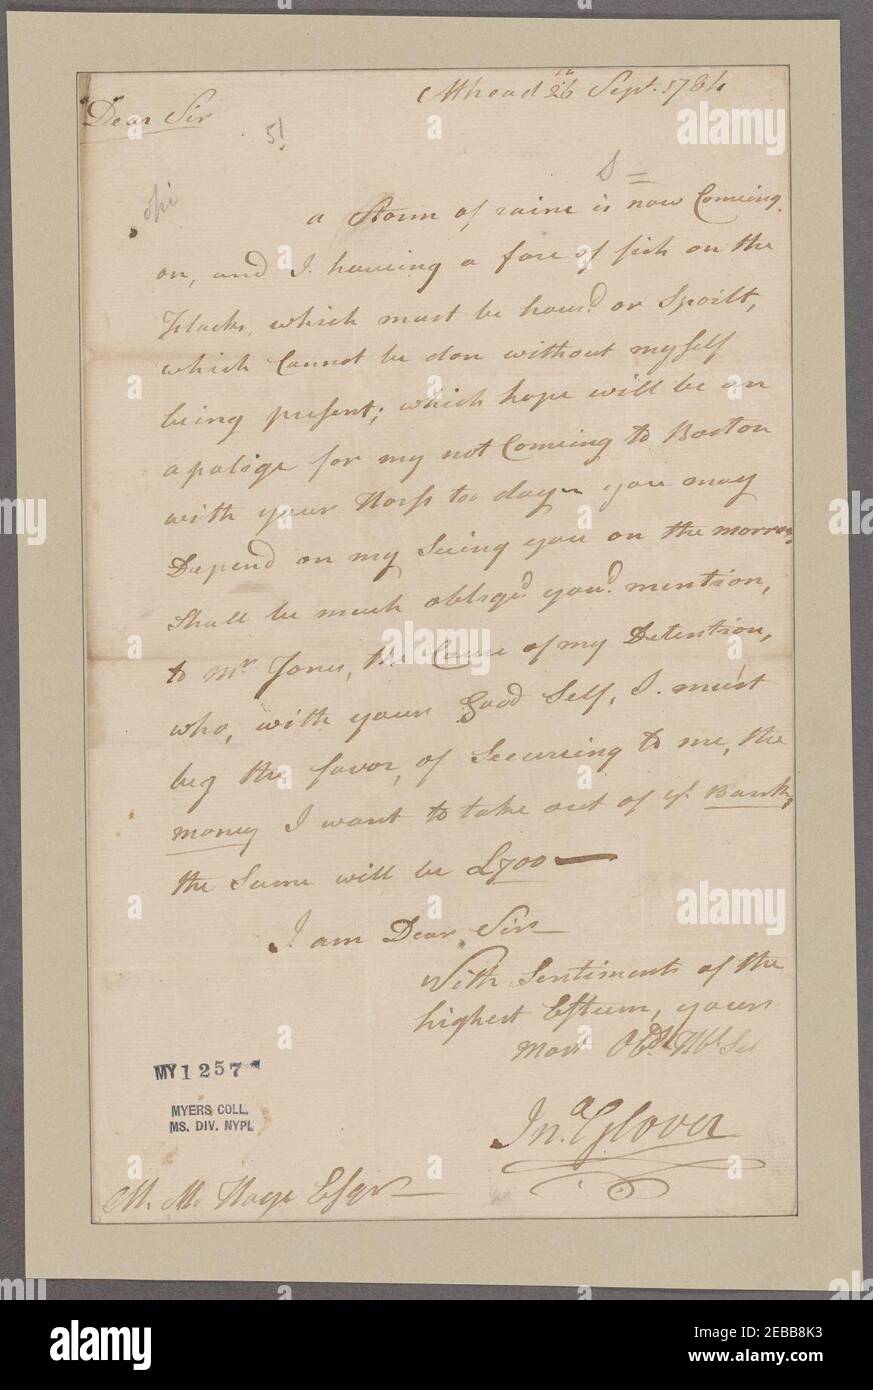 Mhead 26th Sept. 1784
Dear Sir
51
a Storm of raine is now Comeing
on, and I. haveing a fare of fish on the
Flacks, which must be hous'd or Spoilt,
which Cannot be don without myself
being present; which hope will be an
apoligè for my not Comeing to Boston
with your Horss too day you may
Depend on my Seeing you on the morrow,
Shall be much oblig'd you'd. mention,
to Mr Jones, the Cause of my Detention,
who, with your good Self, I. must
beg the favor, of Secureing to me, the
money I want to take out of ye. Bank,
the Same will be £700—
I am Dear Sir
With Sentiments of the
highest Esteem, yours
Most Obdt Hbl Ser
Jna. Glover
M. M. Hays Esqr
MY 1257
MYERS COLL.
MS. DIV. NYPL
alamy
Image ID: 2EBB8K3
www.alamy.com